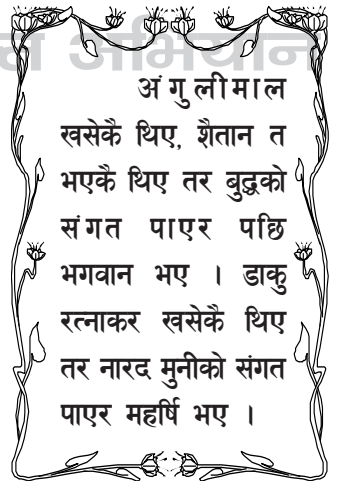 त अभियान
अंगुलीमाल
खसेकै थिए, शैतान त
भएकै थिए तर बुद्धको
संगत पाएर पछि
भगवान भए । डाकु
रत्नाकर खसेकै थिए
तर नारद मुनीको संगत
पाएर महर्षि भए ।